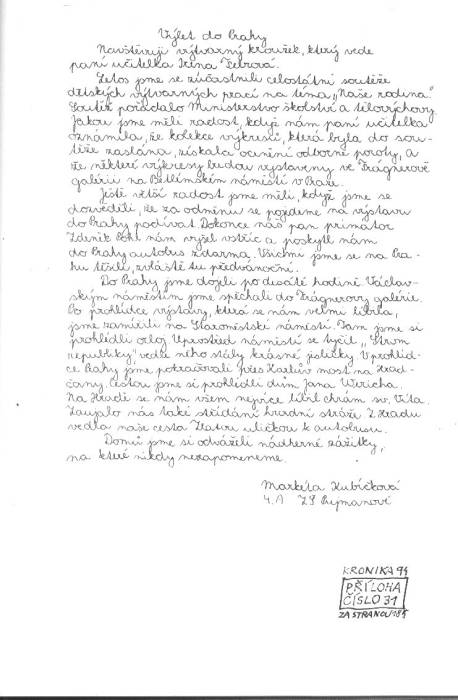 Výlet do Prahy
Navštěvuji výtvarný kroužek, který vede
paní učitelka Irena
Letos jsme se zúčastnili celostátní soutěže
dětských výtvarných prací na téma „Naše rodina."
Soutěž pořádalo Ministerstvo školství a tělovýchovy.
Jakou jsme měli radost, když nám paní učitelka
oznámila, že kolekce výkresů, která byla do sou-
těže zaslána, získala ocenění odborné poroty, a
že některé výkresy budou vystaveny ve Frágnerově
galérii na Betlémském náměstí v Praze.
Ještě větší radost jsme měli, když jsme se
dozvěděli, že za odměnu se pojedeme na výstavu
do Prahy podívat. Dokonce nás pan primátor
Zdeněk nám vyšel vstříc a poskytl nám
do Prahy autobus zdarma. Všichni jsme se na Pra-
hu těšili, zvláště tu předvánoční.
Do Prahy jsme dojeli po desáté hodině. Václav-
ským náměstím jsme spěchali do Frágnerovy galérie.
Po prohlídce výstavy, která se nám velmi líbila,
jsme zamířili na Staroměstské náměstí. Tam jsme si
prohlédli orloj. Uprostřed náměstí se tyčil „Strom
republiky" vedle něho stály krásné jesličky. V prohlíd-
ce Prahy jsme pokračovali přes Karlův most na Hrad-
čany. Cestou jsme si prohlédli dům Jana Wericha.
Na Hradě se nám všem nejvíce líbil chrám sv. Víta.
Zaujalo nás také střídání hradní stráže. Z Hradu
vedla naše cesta Zlatou uličkou k autobusu.
Domů jsme si odváželi nádherné zážitky,
na které nikdy nezapomeneme.
Markéta Kubíčková
4.A ZŠ Rýmanové
KRONIKA 94
PŘÍLOHA
ČÍSLO 31
ZA STRANOU 185